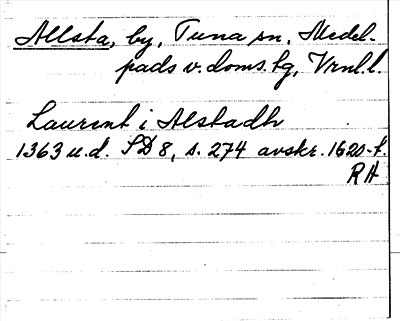 Allsta, by, Tuna sn, Medel-
pads v. doms.tg, Vrnl.l.
Laurent i Alstadh
1363 u.d. SD 8, s. 274 avskr. 1620-t.
RH